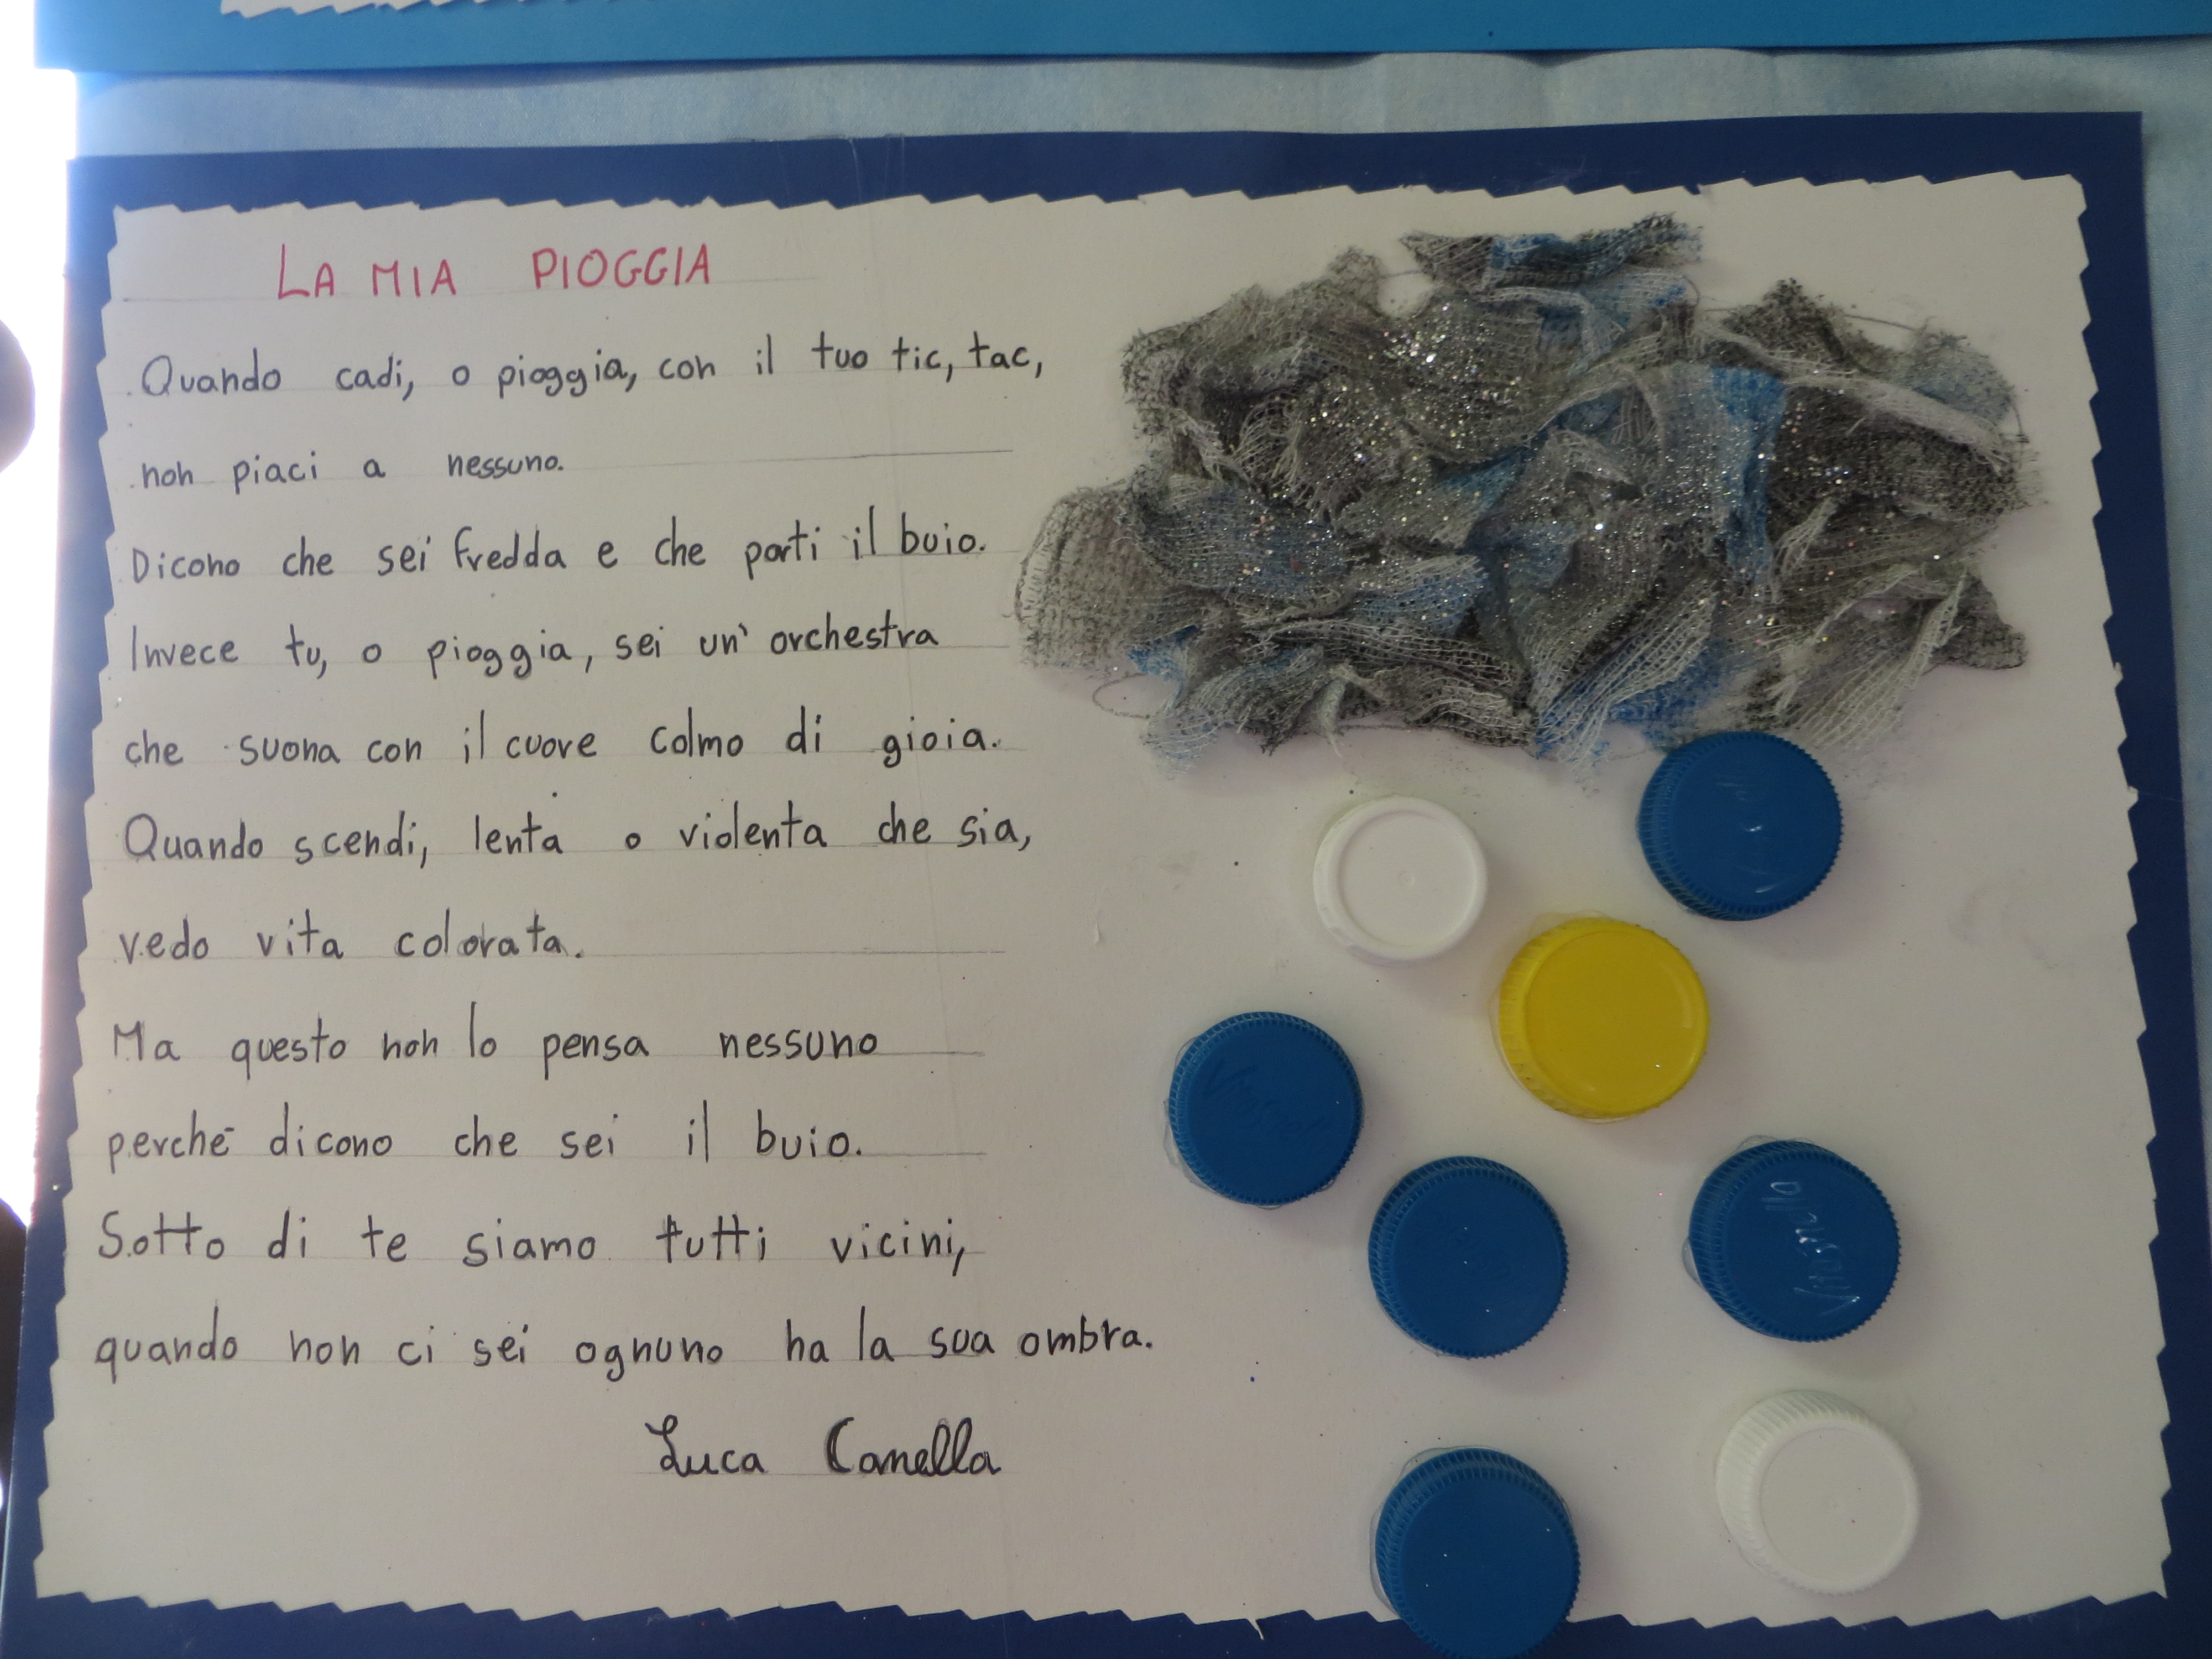 LA MIA PIOGGIA
Quando cadi, o pioggia, con il tuo tic, tac,
non piaci a nessuno.
Dicono che sei fredda e che porti il buio.
Invece tu, o pioggia, sei un' orchestra
che suona con il cuore colmo di gioia.
Quando scendi, lenta o violenta che sia,
vedo vita colorata.
Ma questo non lo pensa nessuno
perché dicono che sei il buio.
Sotto di te siamo tutti vicini,
quando non ci sei ognuno ha la sua ombra.
Luca Canella
Vitasnella